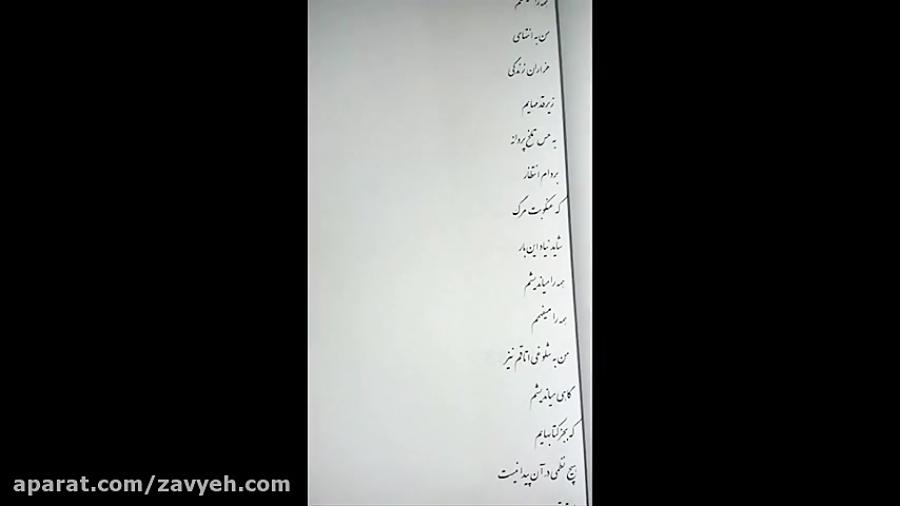 همه را میفهمم
من به انتهای
هزاران زندگی
زیر قدمهایم
به حس تلخ پروانه
بر دام انتظار
که عنکبوت مرگ
شاید نیاد این بار
همه را میاندیشم
همه را میفهمم
من به شلوغی اتاقم نیز
گاهی میاندیشم
که بجز کتابهایم
هیچ نظمی در آن پیدا نیست
aparat.com/zavyeh.com